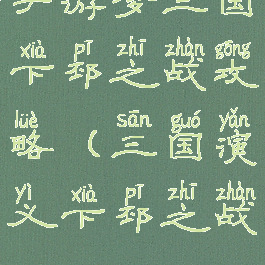 三国
xià pī zhī zhàn gōng
下邳之战攻
lüè sān guó yǎn
略（三国演
yì xià pī zhī zhàn
义下邳之战